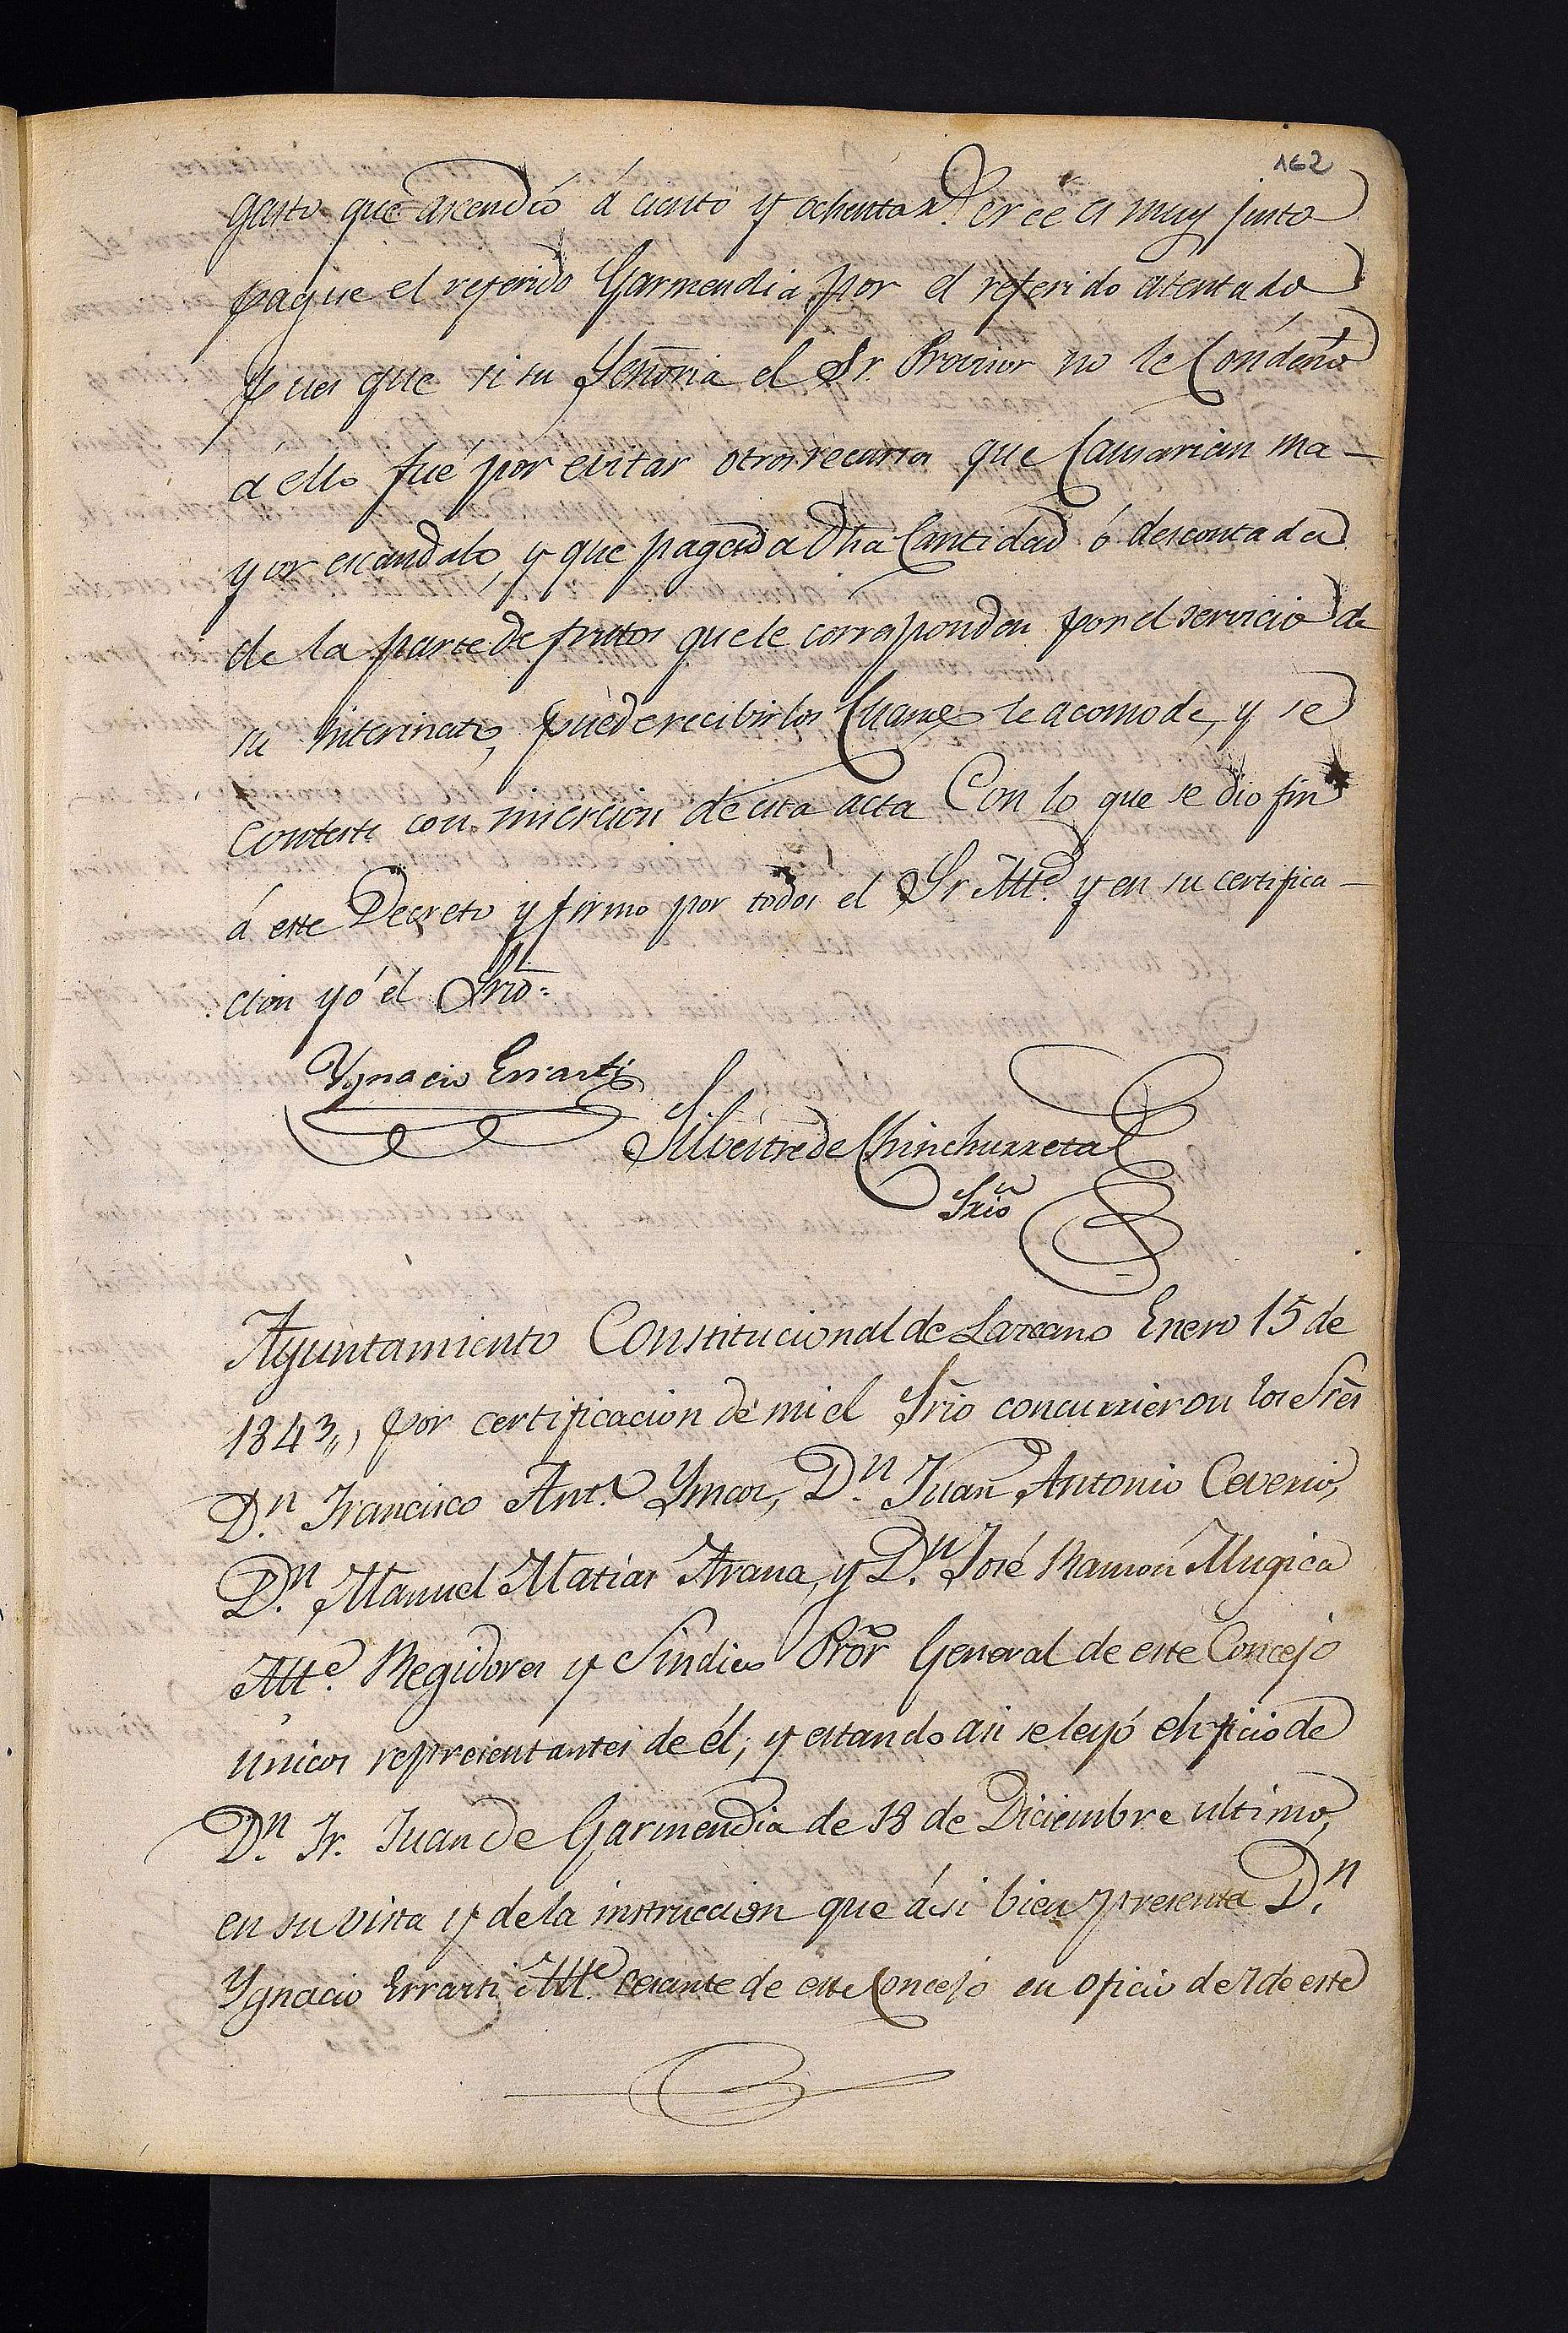 162
gasto que ascendió á ciento y ochenta r.ˢ cree es muy justo
pague el referido Garmendia por el referido atentado
pues que si su Señoria el Sr. Provisor no le Condenó
á ello fué por evitar otros recursos que Causarian ma-
yor escandalo, y que pagada dha Cantidad ó descontada
de la parte de frutos que le correspondan por el servicio de
su interinato, puede recibirlos Cuando le acomode, y se
conteste con insercion de esta acta Con lo que se dio fin
á este Decreto y firmo por todos el Sr Alt.ᵉ y en su certifica-
cion yo el Srio=
Ygnacio Errarti
Silvestre de Chinchurreta
Srio
Ayuntamiento Constitucional de Lazcano Enero 15 de
1843,, por certificacion de mi el Srio concurrieron los Sres
D.ⁿ Francisco Ant.º Ymaz, D.ⁿ Juan Antonio Ceverio,
D.ⁿ Manuel Matias Arana, y D.ⁿ José Ramon Mugica
Alt.ᵉ Regidores y Sindico Pror General de este Concejo
unicos representantes de él; y estando asi se leyó el oficio de
D.ⁿ Fr. Juan de Garmendia de 18 de Diciembre ultimo,
en su vista y de la instruccion que ási bien presenta D.ⁿ
Ygnacio Errarti Alt.ᵉ cesante de este Concejo en oficio de 7 de este